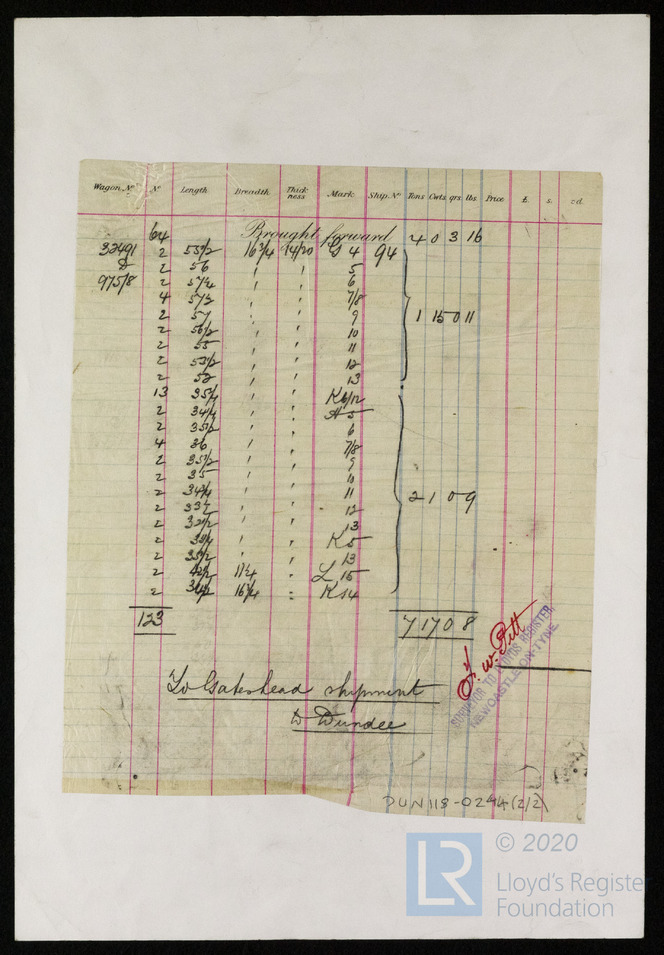 Wagon Nº Nº Length Breadth Thickness Mark Ship Nº Tons Cwts qrs lbs Price £. s. d.
64 Brought forward 4 0 3 16
32491 2 55 1/2 16 3/4 14/20 G 4 94
& 2 56 " " 5
975/8 2 57 1/4 " " 6
4 57 1/2 " " 7/8
2 57 " " 9 1 15 0 11
2 56 1/2 " " 10
2 55 " " 11
2 53 1/2 " " 12
2 52 " " 13
13 35 1/4 " " K 6/12
2 34 1/4 " " H 5
2 35 1/2 " " 6
4 36 " " 7/8
2 35 1/2 " " 9
2 35 " " 10
2 34 3/4 " " 11 2 1 0 9
2 33 1/2 " " 12
2 32 1/2 " " 13
2 " " K 5
2 35 1/2 " " 13
2 42 1/2 11 1/4 " L 15
2 34 1/2 16 3/4 " K 14
123 7 17 0 8
To Gateshead shipment
to Dundee
F. W. Pitt
SURVEYOR TO LLOYDS REGISTER,
NEWCASTLE-ON-TYNE
DUN118-0294(2/2)
LR © 2020
Lloyd's Register
Foundation